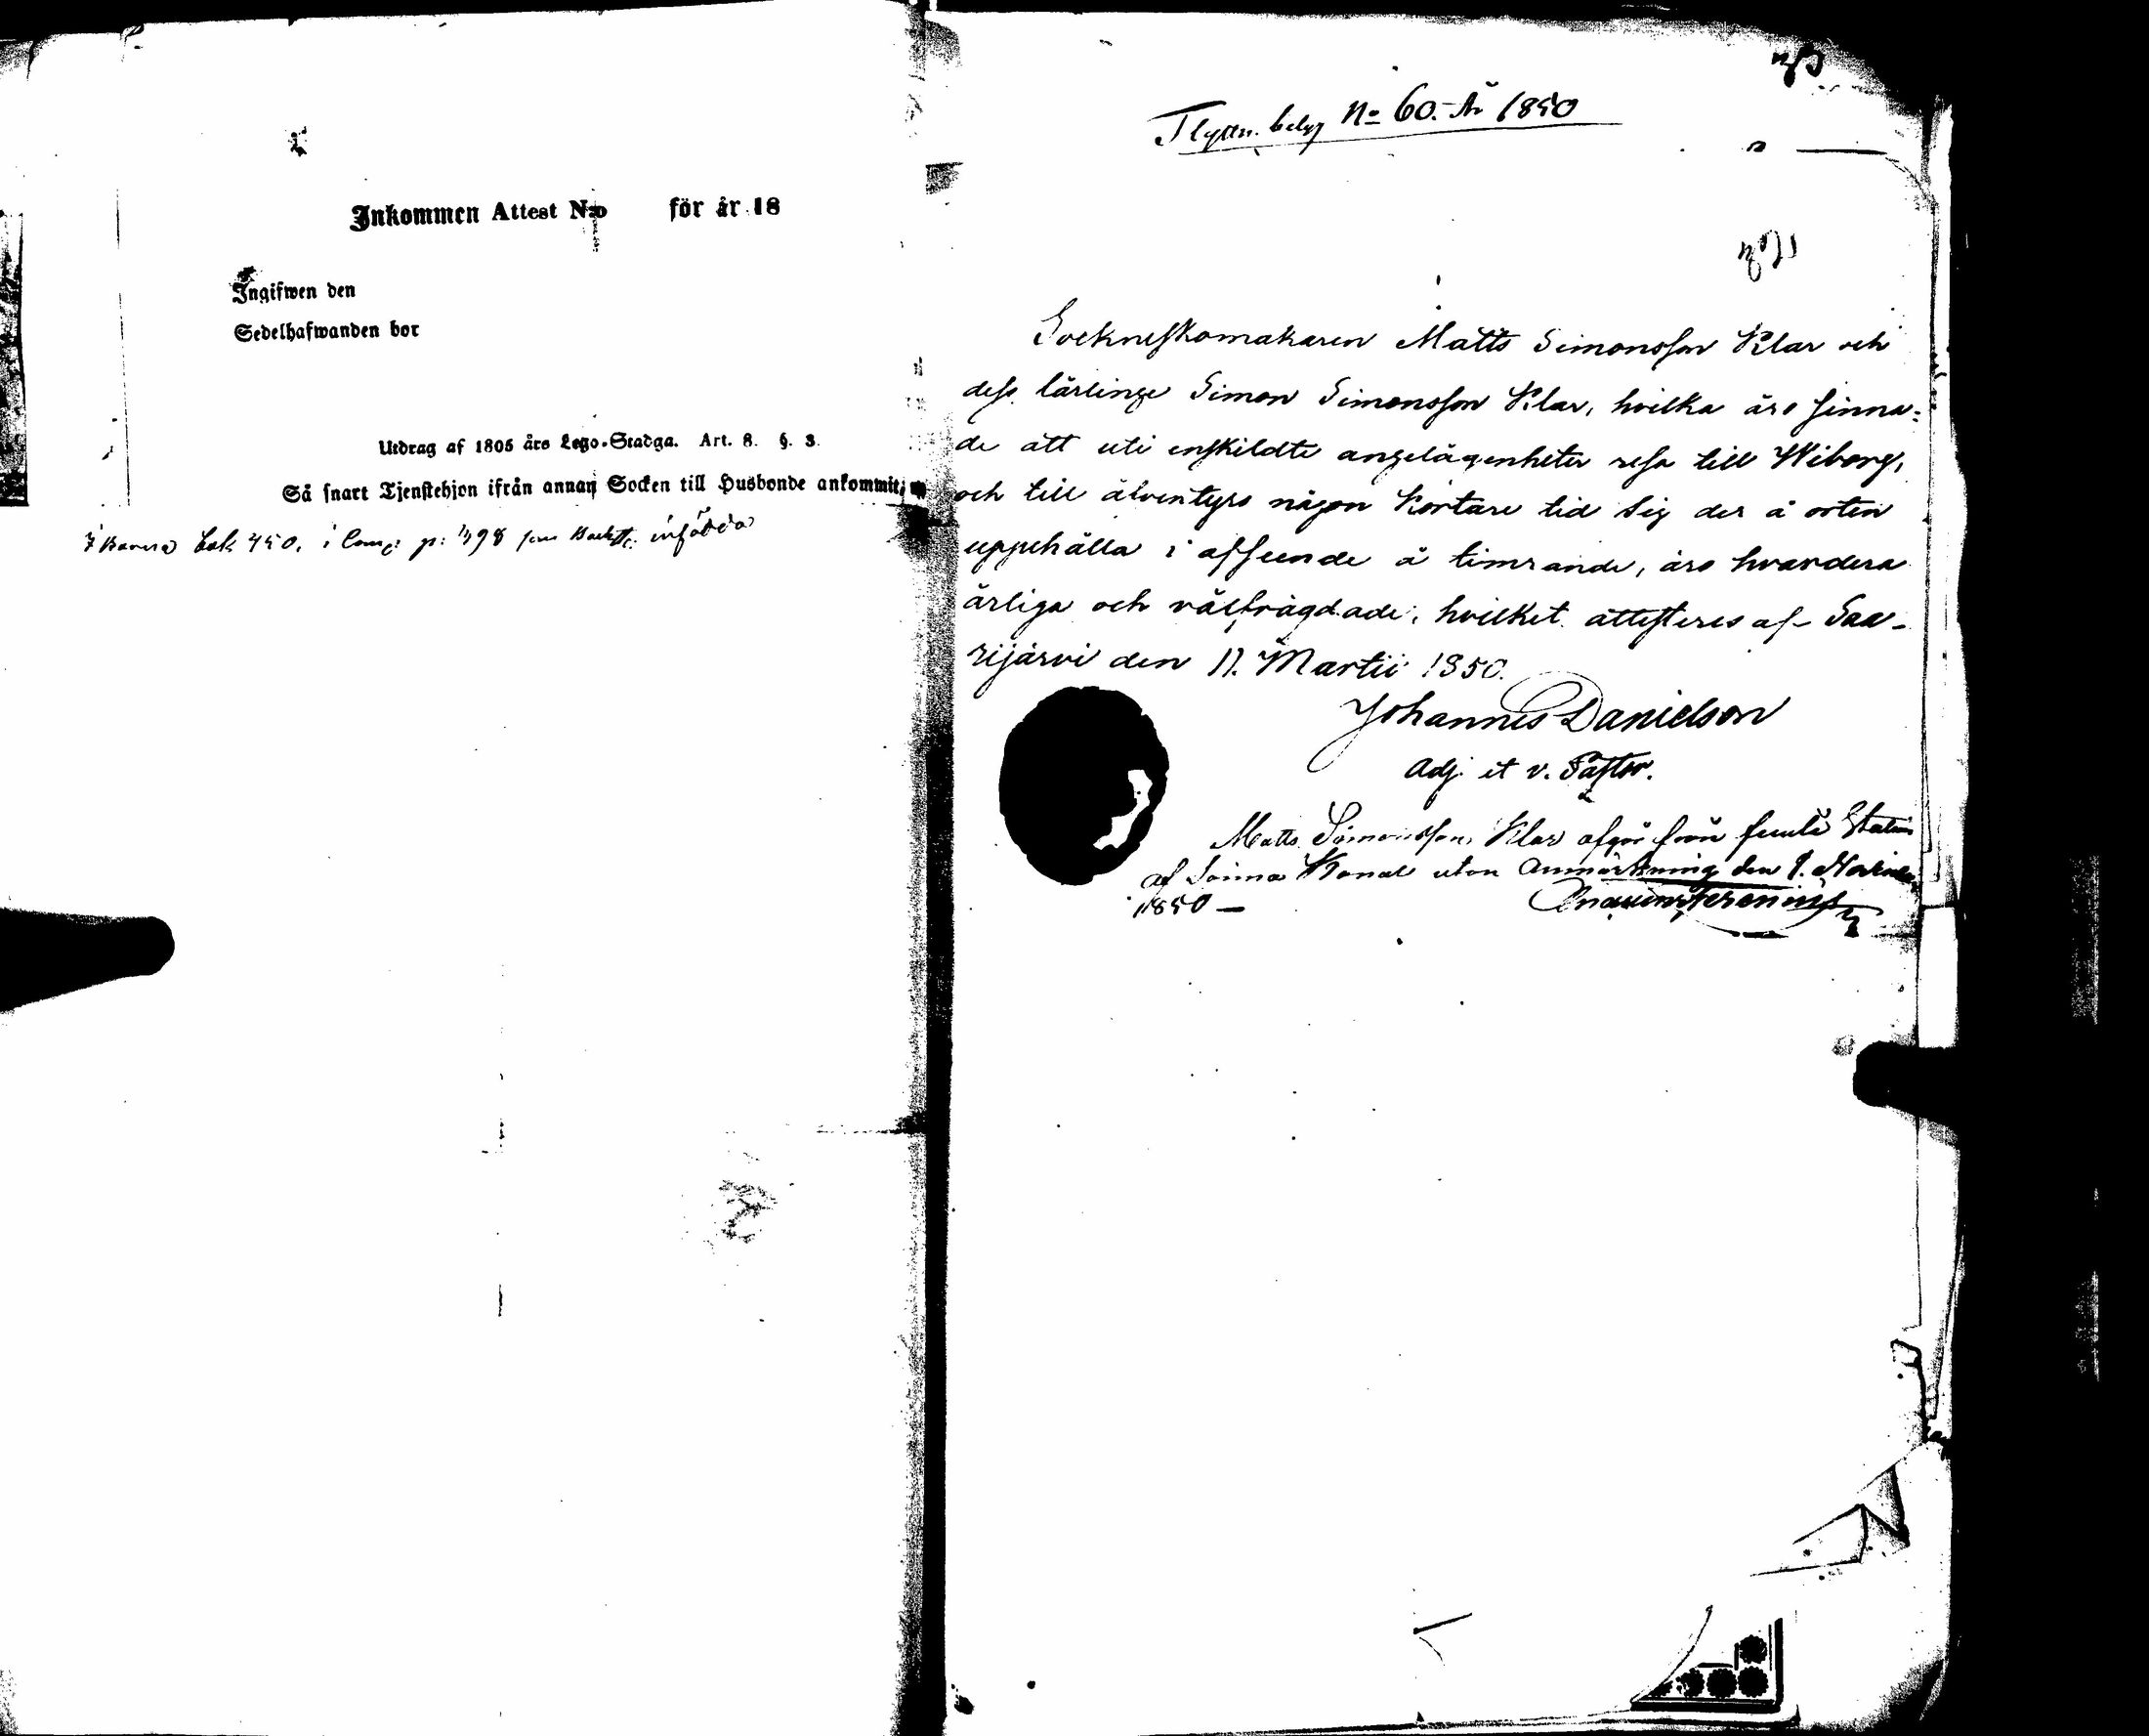 Inkommen Attest N:o för år 18
Ingifwen den
Sedelhafwanden bor
Utdrag af 1805 års Lego-Stadga. Art. 8. §. 3.
Så snart Tjenstehjon ifrån annan Socken till Husbonde ankommit,
bok 450, i p: 498 införda
Flyttn. betyg No 60. År 1850
Sockneskomakaren Matts Simonsson Klar och
dess lärlinge Simon Simonsson Klar, hvilka äro sinna-
de att uti enskildte angelägenheter resa till Wiborg,
och till äfventyrs någon kortare tid sig der å orten
uppehålla i afseende å timrande, äro hvardera
ärliga och välfrägdade, hvilket attesteres af Saa-
rijärvi den 11. Martii 1850.
Johannes Danielson
Adj. et v. Pastor.
Matts Simonsson Klar afgår från femte Station
af Saima Kanal utan Anmärkning den 1. November
1850 —